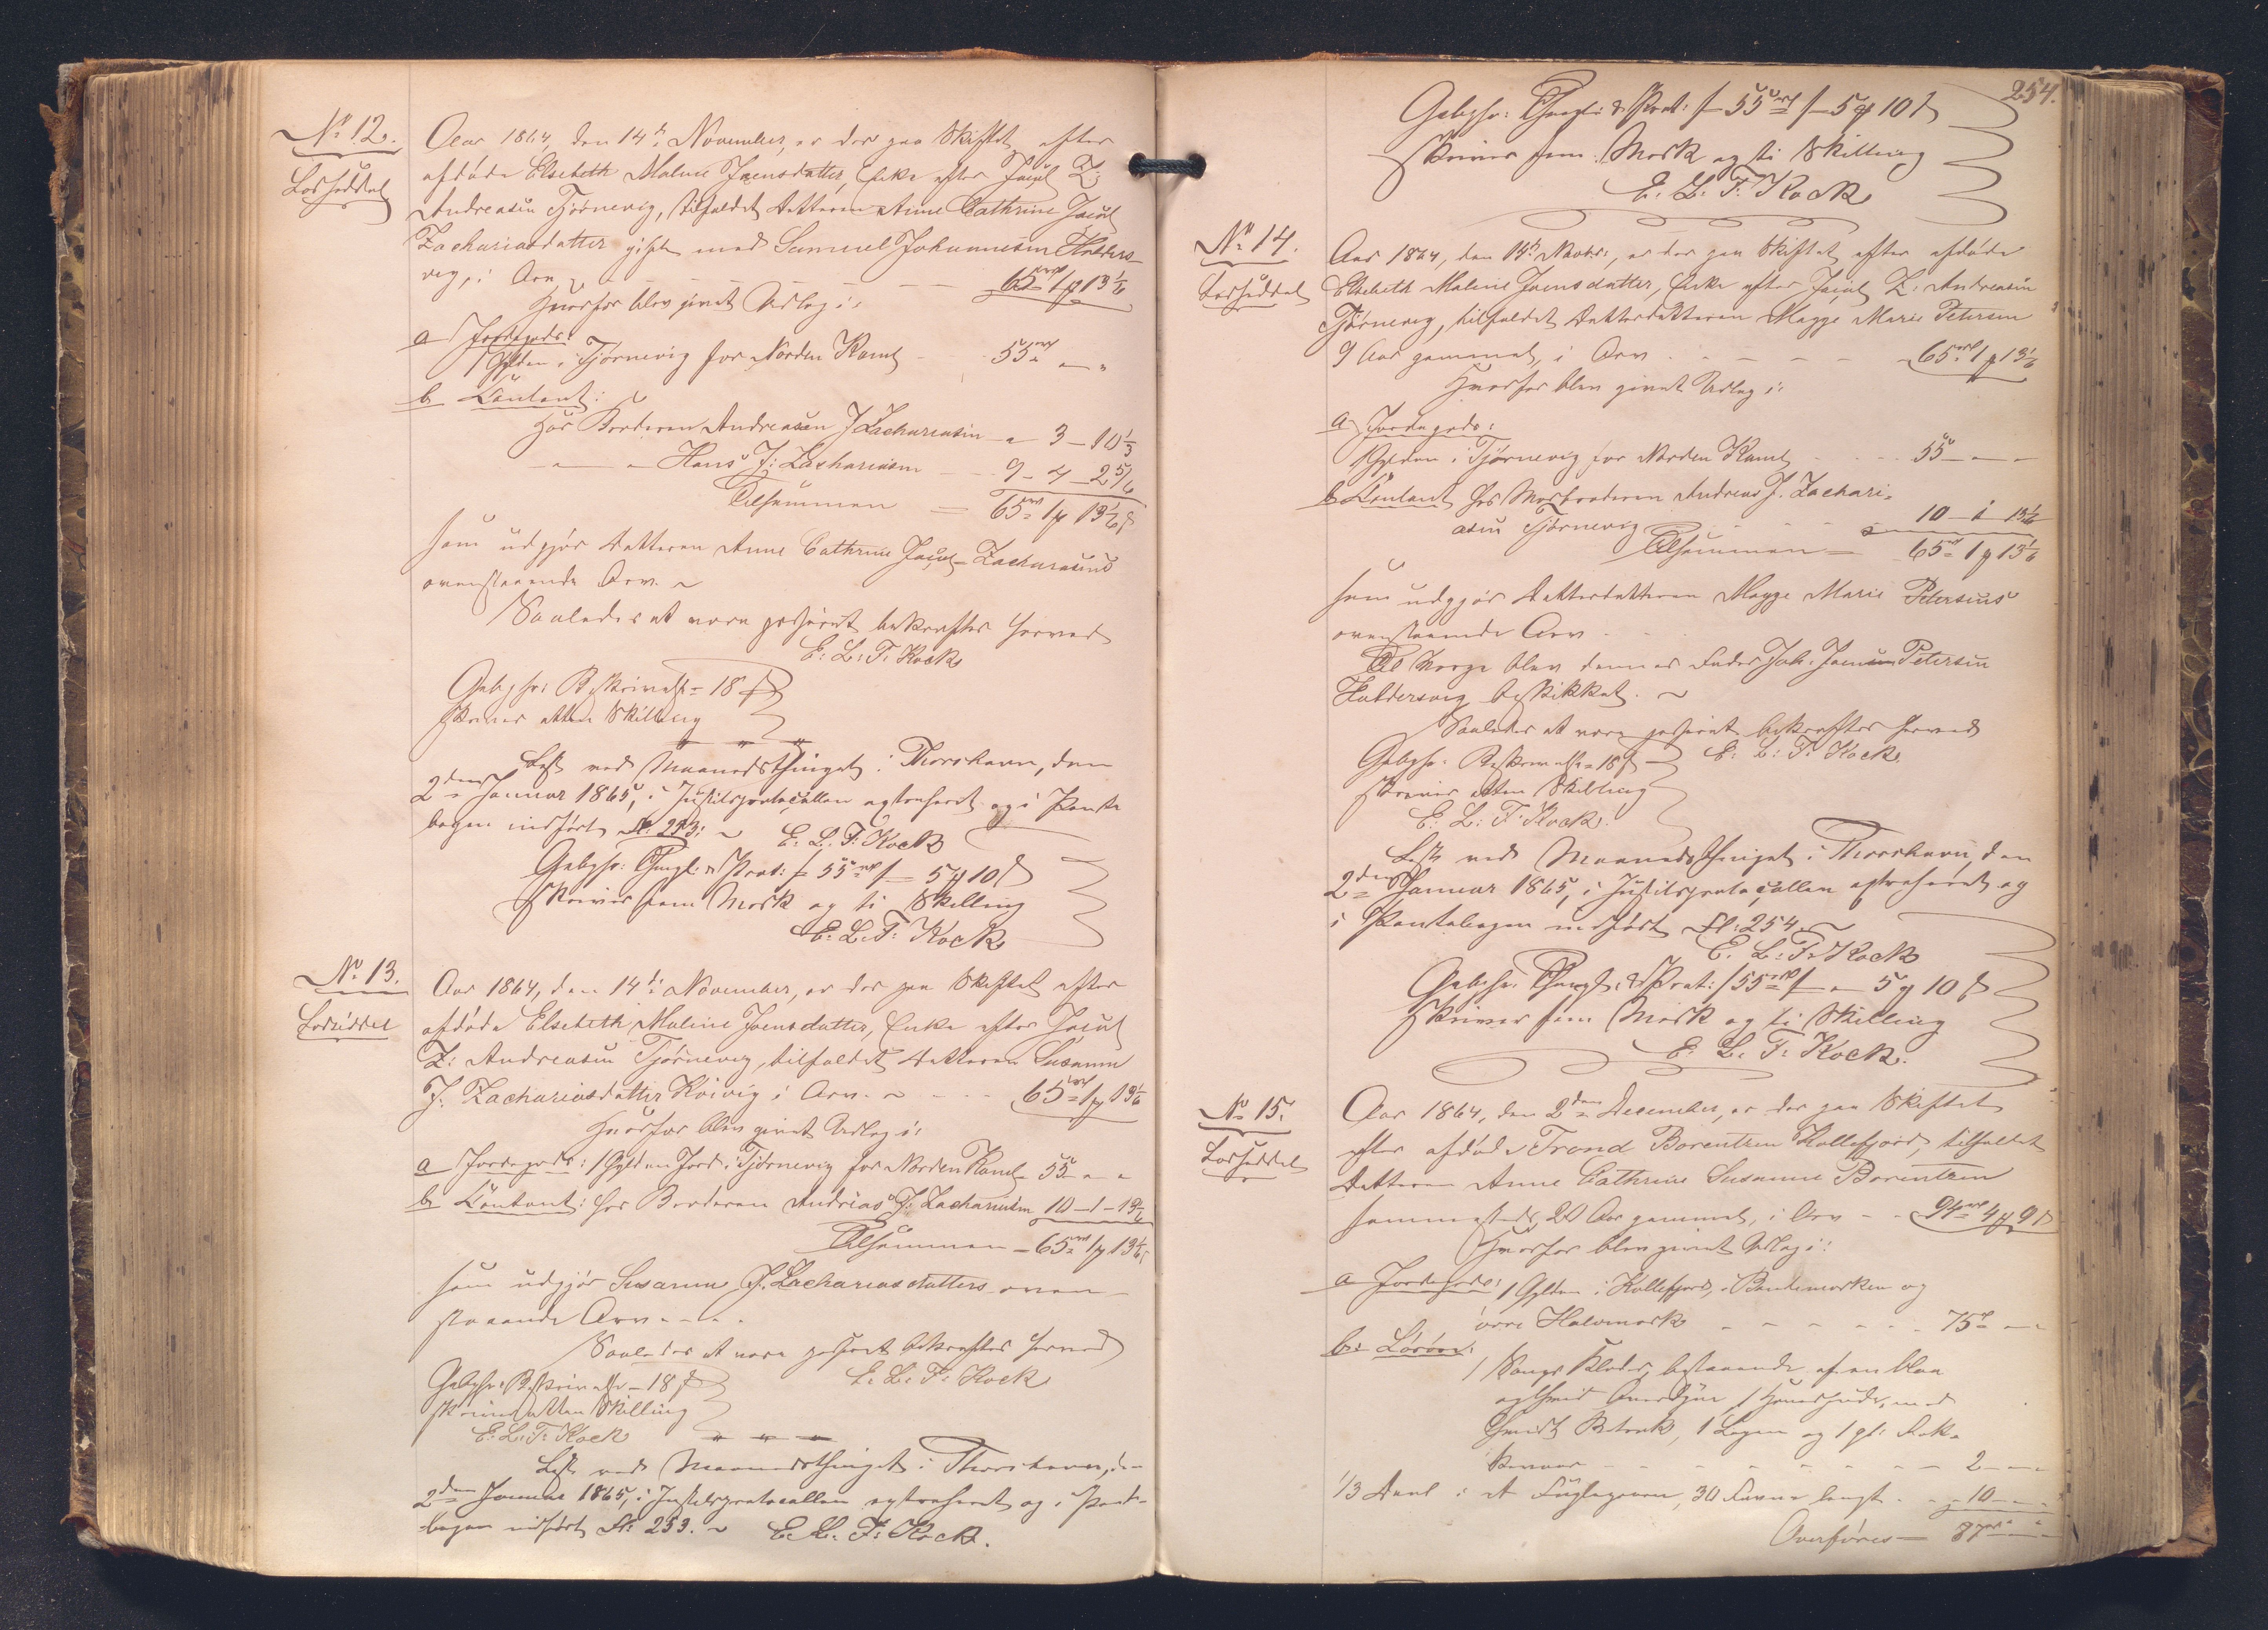 No 12.
Lodseddel
Aar 1864, den 14de November, er der paa Skiftet efter
afdøde Elsebeth Maline Joensdatter, Enke efter Jacob Z:
Andreasen Tjørnevig, tilfaldet Datteren Anne Cathrine Jacob
Zachariasdatter gift med Samuel Johannesen Halders-
vig, i Arv 65rd 1 13 1/6
Hvorfor blev givet Udlæg i:
a Jordegods:
1 Gylden i Tjørnevig for Norden Kamb 55rd " "
b Contant:
hos Broderen Andreasen J Zachariasen " 3 - 10 1/3
" " Hans J: Zachariasen 9 - 4 - 2 5/6
Tilsammen = 65rd 1 13 1/6
som udgjør Datteren Anne Cathrine Jacob Zachariasens
ovenstaaende Arv. ~
Saaledes at være passeret bekræftes herved
E: L: F: Kock
Gebyhr: Beskrivelse = 18
skriver atten Skilling
Læst ved Maanedsthinget i Thorshavn, den
2den Januar 1865, i Justitsprotocollen extraheret og i Pante
bogen indført Fl: 253: ~ E. L. F: Kock
Gebyhr: Thingl: & Prot: f 55rd f 5 10
skriver fem Mark og ti Skilling
E. L. F: Kock
No 13.
Lodseddel
Aar 1864, den 14de November, er der paa Skiftet efter
afdøde Elsebeth Maline Joensdatter, Enke efter Jacob
Z: Andreasen Tjørnevig, tilfaldet Datteren Susanne
J. Zachariasdatter Kvivig i Arv. ~ 65rd 1 13 1/6
Hvorfor blev givet Udlæg i:
a Jordegods: 1 Gylden Jord i Tjørnevig for Norden Kamb 55 " "
b Contant: hos Broderen Andreas J: Zachariasen 10 - 1 - 13 1/6
Tilsammen = 65rd 1 13 1/6
som udgjør Susanne J. Zachariasdatters oven-
staaende Arv
Saaledes at være passeret bekræftes herved
Gebyhr: Beskrivelse - 18 E: L: F: Kock
skriver atten Skilling
E: L: F: Kock
Læst ved Maanedsthinget i Thorshavn, den
2den Januar 1865, i Justitsprotocollen extraheret og i Pante-
bogen indført Fl: 253. ~ E. L. F: Kock.
254.
Gebyhr: Thingl: & Prot: f 55rd f 5 10
skriver fem Mark og ti Skilling
E. L. F: Kock
No 14.
Lodseddel
Aar 1864, den 14de Novbr:, er der paa Skiftet efter afdøde
Elsebeth Maline Joensdatter, Enke efter Jacob Z: Andreasen
Tjørnevig, tilfaldet Datterdatteren Magge Marie Petersen
9 Aar gammel, i Arv 65rd 1 13 1/6
Hvorfor blev givet Udlæg i:
a Jordegods:
1 Gylden i Tjørnevig for Norden Kamb 55 " "
b Contant hos Morbroderen Andreas J. Zachari-
asen Tjørnevig 10 - 1 - 13 1/6
Tilsammen = 65rd 1 13 1/6
som udgjør Datterdatteren Magge Marie Petersens
ovenstaaende Arv
Til Værge blev dennes Fader Joh: Joensen Petersen
Haldersvig beskikket. ~
Saaledes at være passeret bekræftes herved
Gebyhr: Beskrivelse = 18 E: L: F: Kock
skriver atten Skilling
E. L: F: Kock.
Læst ved Maanedsthinget i Thorshavn, den
2den Januar 1865, i Justitsprotocollen extraheret og
i Pantebogen indført Fl: 254. ~
E. L: F: Kock
Gebyhr: Thingl: & Prot: f 55rd f " 5 10
skriver fem Mark og ti Skilling
E. L. F: Kock.
No 15.
Lodseddel
Aar 1864, den 2den December, er der paa Skiftet
efter afdøde Trond Barentzen Kollefjord, tilfaldet
Datteren Anne Cathrine Susanne Barentzen
sammesteds 20 Aar gammel, i Arv 94rd 4 9
Hvorfor blev givet Udlæg i:
a Jordegods: 1 Gylden i Kollefjord, i Bøndemarken og
øvre Halvmark 75rd " "
b: Løsøre:
1 Sengs Klæder, bestaaende af en blaa
og hvid Overdyne 1 Hovedpude, med
hvidt Betræk, 1 Lagen og 1 gl:
2 " "
1/3 Deel i et Fuglegarn, 30 Favne langt 10 " "
Overføres = 87rd " "